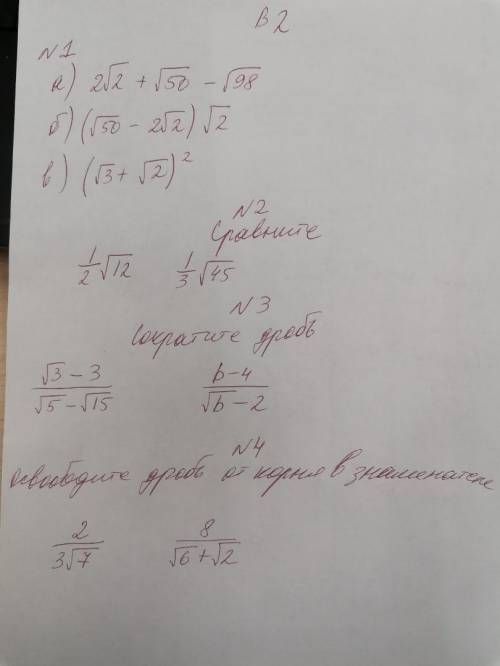 В2
N1
а) 2√2 + √50 − √98
б) (√50 − 2√2) √2
в) (√3 + √2)²
N2
Сравните
1/2 √12 1/3 √45
N3
Сократите дробь
(√3 − 3)/(√5 − √15) (b − 4)/(√b − 2)
N4
освободите дробь от корня в знаменателе
2/(3√7) 8/(√6 + √2)